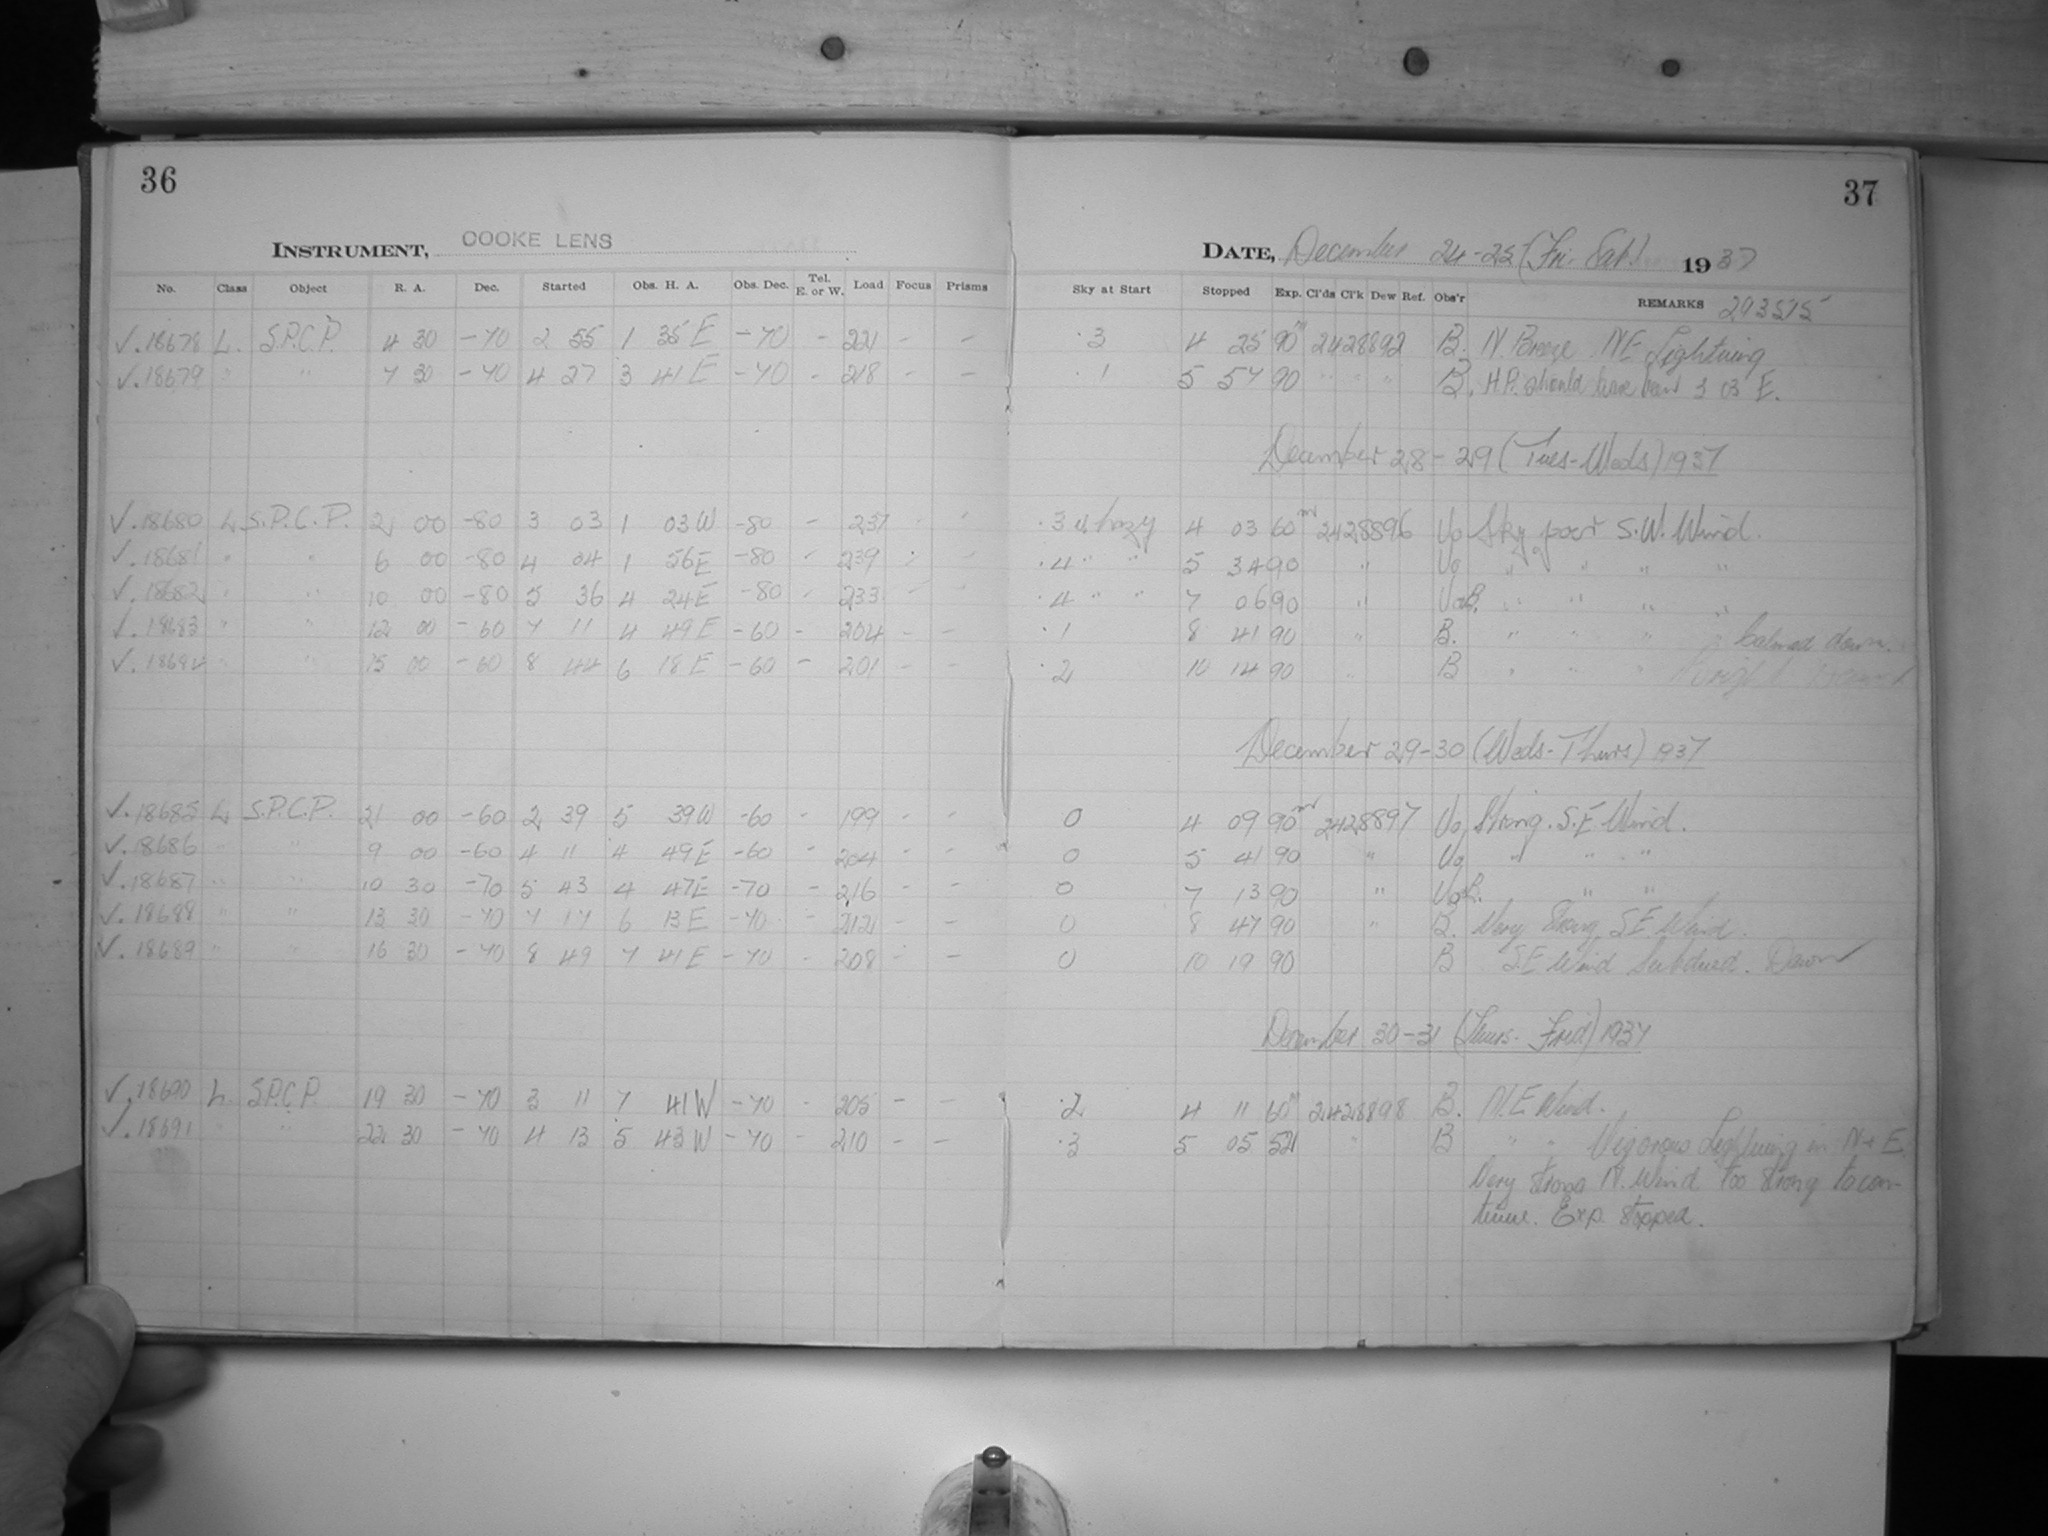 36
37
INSTRUMENT, COOKE LENS
DATE, December 24-25 (Fri. Sat.) 1937
No. Class Object R. A. Dec. Started Obs. H. A. Obs. Dec. Tel. E. or W. Load Focus Prisms Sky at Start Stopped Exp. Cl'ds Cl'k Dew Ref. Obs'r REMARKS 293515
✓. 18678 L. S.P.C.P. 4 30 -70 2 55 1 35 E -70 - 221 - - .3 4 25 90m 2428892 B. N. Breeze NE Lightning
✓. 18679 " " 7 30 -70 4 27 3 41 E -70 - 218 - - .1 5 57 90 " " " B. H.P. should have been 3 03 E.
December 28-29 (Tues-Weds) 1937
✓. 18680 L S.P.C.P. 2 00 -80 3 03 1 03 W -80 - 237 - - .3 & hazy 4 03 60m 2428896 Vo Sky poor S.W. Wind.
✓. 18681 " " 6 00 -80 4 04 1 56 E -80 - 239 - - .4 " " 5 34 90 " Vo " " " "
✓. 18682 " " 10 00 -80 5 36 4 24 E -80 - 233 - - .4 " " 7 06 90 " Vo B. " " " "
✓. 18683 " " 12 00 -60 7 11 4 49 E -60 - 204 - - .1 8 41 90 " B. " " " " Calmed down.
✓. 18684 " " 15 00 -60 8 44 6 18 E -60 - 201 - - .2 10 14 90 " B " " "
December 29-30 (Weds-Thurs) 1937
✓. 18685 L S.P.C.P. 21 00 -60 2 39 5 39 W -60 - 199 - - 0 4 09 90m 2428897 Vo Strong. S.E Wind.
✓. 18686 " " 9 00 -60 4 11 4 49 E -60 - 204 - - 0 5 41 90 " Vo " " "
✓. 18687 " " 10 30 -70 5 43 4 47 E -70 - 216 - - 0 7 13 90 " Vo B. " "
✓. 18688 " " 13 30 -70 7 17 6 13 E -70 - 212 - - 0 8 47 90 " B. Very Strong S.E. Wind.
✓. 18689 " " 16 30 -70 8 49 7 41 E -70 - 208 - - 0 10 19 90 B S.E Wind Subdued. Dawn
December 30-31 (Thurs-Frid) 1937
✓. 18690 L. S.P.C.P. 19 30 -70 3 11 7 41 W -70 - 205 - - .2 4 11 60m 2428898 B. N.E Wind.
✓. 18691 " " 22 30 -70 4 13 5 43 W -70 - 210 - - .3 5 05 52 " B " " Vigorous Lightning in N + E.
Very strong N. Wind too strong to con-
tinue. Exp. stopped.